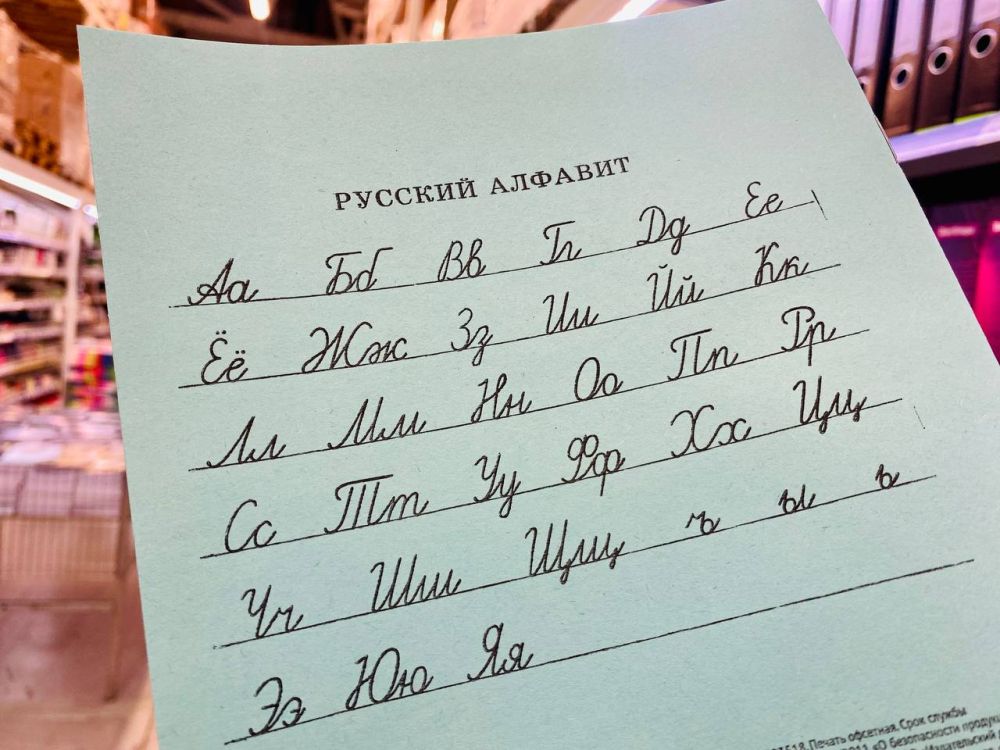 РУССКИЙ АЛФАВИТ
Аа Бб Вв Гг Дд Ее
Ёё Жж Зз Ии Йй Кк
Лл Мм Нн Оо Пп Рр
Сс Тт Уу Фф Хх Цц
Чч Шш Щщ ъ ы ь
Ээ Юю Яя
Печать офсетная. Срок службы
«О безопасности